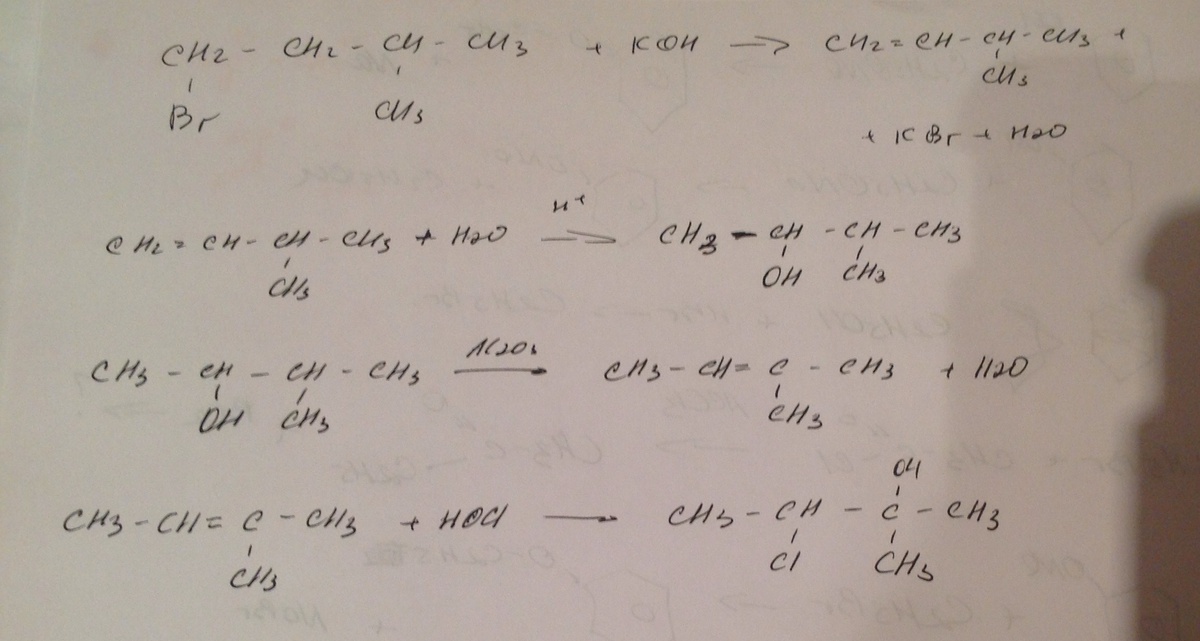 CH2 - CH2 - CH - CH3 + KOH → CH2 = CH - CH - CH3 +
Br CH3 CH3
+ KBr + H2O
CH2 = CH - CH - CH3 + H2O H+ → CH3 - CH - CH - CH3
CH3 OH CH3
CH3 - CH - CH - CH3 Al2O3 → CH3 - CH = C - CH3 + H2O
OH CH3 CH3
OH
CH3 - CH = C - CH3 + HOCl → CH3 - CH - C - CH3
CH3 Cl CH3